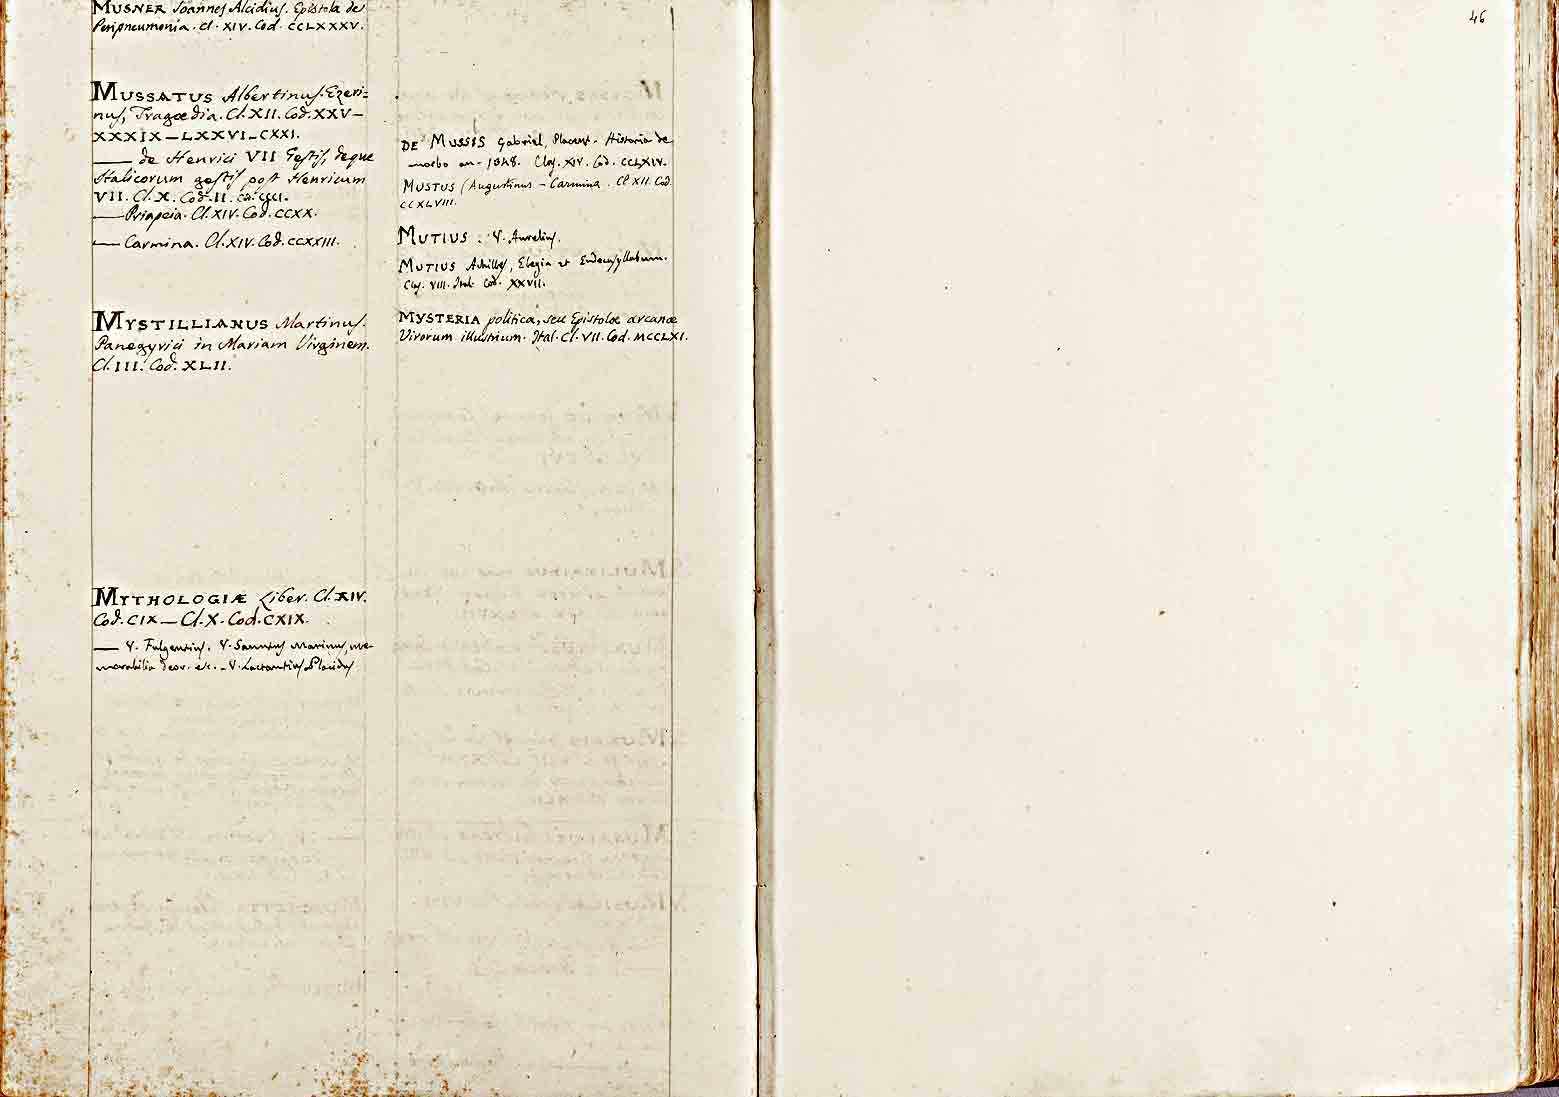 MUSNER Joannes Alcidius. Epistola de
Peripneumonia. Cl. XIV. Cod. CCLXXXV.
MUSSATUS Albertinus. Ezeri=
nus, Tragœdia. Cl. XII. Cod. XXV—
XXXIX—LXXVI—CXXI.
— de Henrici VII Gestis, deque
Italicorum gestis post Henricum
VII. Cl. X. Cod. II.
— Priapeia. Cl. XIV. Cod. CCXX.
— Carmina. Cl. XIV. Cod. CCXXIII.
MYSTILLIANUS Martinus.
Panegyrici in Mariam Virginem.
Cl. III. Cod. XLII.
MYTHOLOGIÆ Liber. Cl. XIV.
Cod. CIX—Cl. X. Cod. CXIX.
— V. Fulgentius. V. Sanutus Marinus, me-
morabilia deor. etc. - V. Lactantius Placidus
DE MUSSIS Gabriel, Placent. Historia de
morbo an. 1348. Clas. XIV. Cod. CCLXIV.
MUSTUS (Augustinus - Carmina. Cl XII. Cod.
CCXLVIII.
MUTIUS. V. Aurelius.
MUTIUS Achilles, Elegia et Endecasyllabum.
Clas. VIII. Ital. Cod. XXVII.
MYSTERIA politica, seu Epistolæ arcanæ
Virorum illustrium. Ital. Cl. VII. Cod. MCCLXI.
46